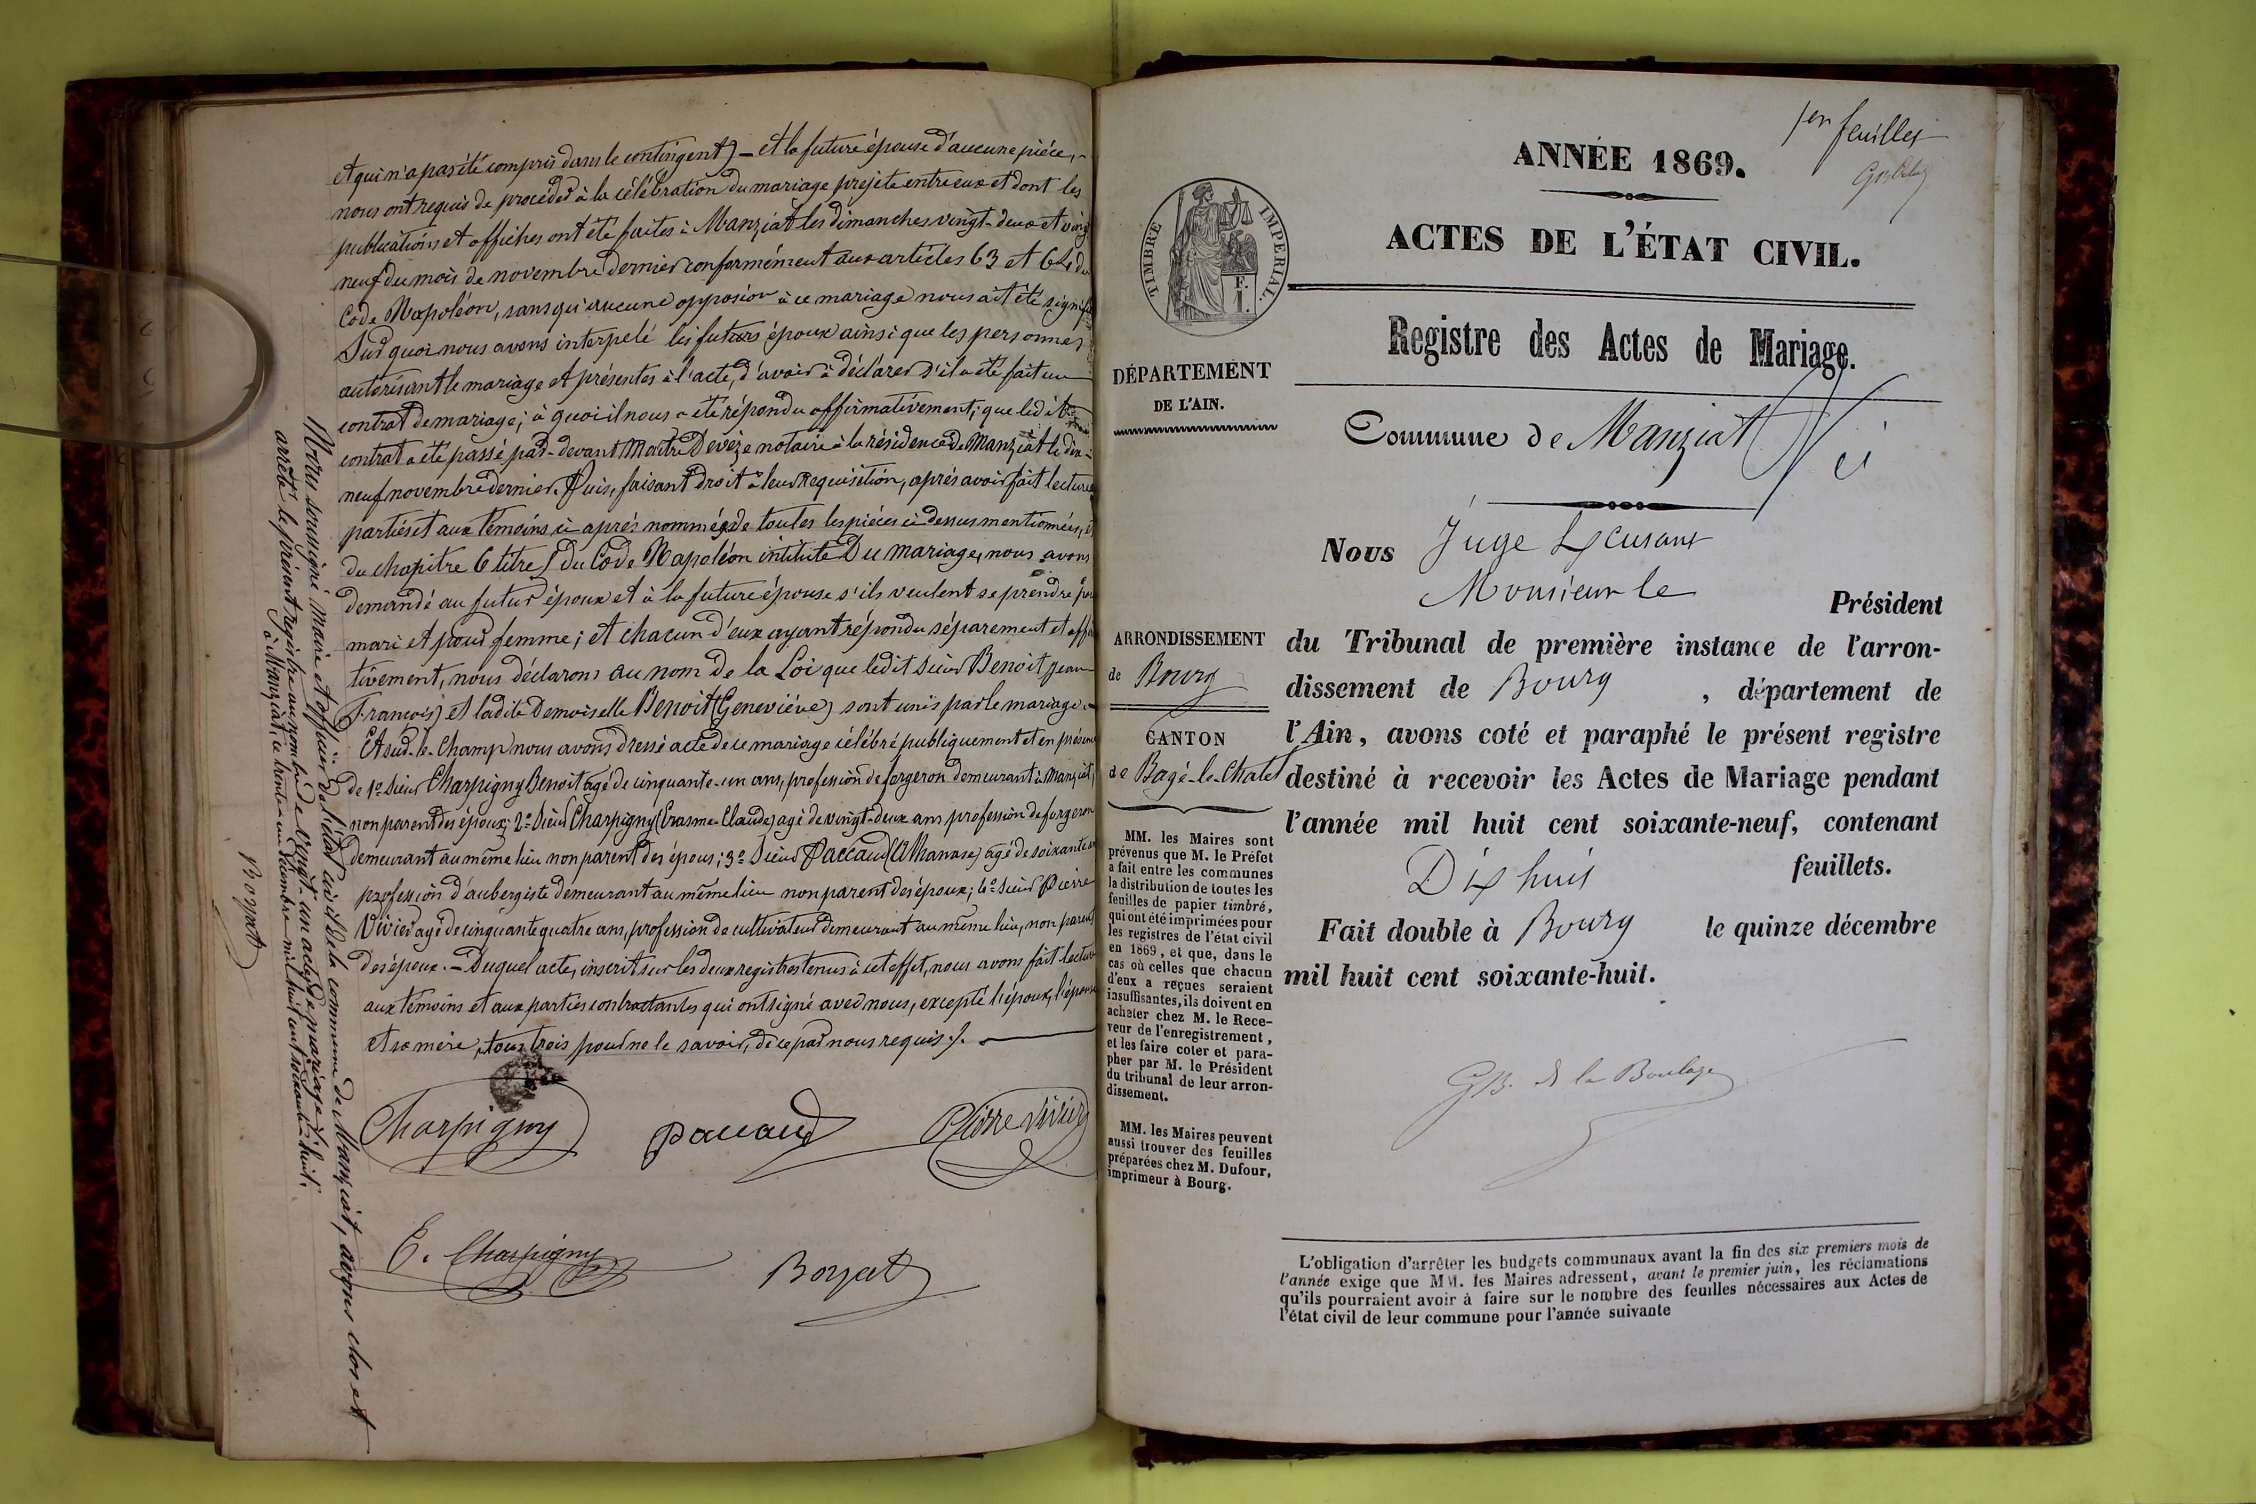 et qui n'a pas été compris dans le contingent) – et la future épouse d'aucune pièce, –
nous ont requis de procéder à la célébration du mariage projeté entre eux et dont les
publications et affiches ont été faites à Manziat les dimanches vingt-deux et vingt
neuf du mois de novembre dernier conformément aux articles 63 et 64 du
Code Napoléon, sans qu'aucune opposion à ce mariage nous ait été signifi
Sur quoi nous avons interpelé les futurs époux ainsi que les personnes
autorisant le mariage et présentes à l'acte, d'avoir à déclarer s'il a été fait un
contrat de mariage; à quoi il nous a été répondu affirmativement; que ledit
contrat a été passé par-devant Maître Devèze notaire à la résidence de Manziat le dix-
neuf novembre dernier. Puis, faisant droit à leur Requisition, après avoir fait lecture
parties et aux témoins ci après nommés, de toutes les pièces ci dessus mentionnées, et
du chapitre 6 titre 5 du Code Napoléon intitulé Du mariage, nous avons
demandé au futur époux et à la future épouse s'ils veulent se prendre pou
mari et pour femme; et chacun d'eux ayant répondu séparement et affir
tivement, nous déclarons au nom de la Loi que ledit sieur Benoit Jean
François) et ladite Demoiselle Benoit (Geneviève) sont unis par le mariage. –
Et sur-le-Champ nous avons dressé acte de ce mariage célébré publiquement et en présence
de 1º Sieur Charpigny Benoit agé de cinquante-un ans, profession de forgeron demeurant à Manziat,
non parent des époux; 2º Sieur Charpigny (Erasme-Claude) agé de vingt-deux ans profession de forgeron
demeurant au même lieu non parent des époux; 3º Sieur Paccaud (Athanase) agé de soixante
profession d'aubergiste demeurant au même lieu non parent des époux; 4º Sieur Pierre
Vivier agé de cinquante quatre ans, profession de cultivateur demeurant au même lieu, non parent
des époux. – Duquel acte, inscrit sur les deux registres tenus à cet effet, nous avons fait lecture
aux témoins et aux parties contractantes qui ont signé avec nous, excepté l'époux, l'épouse
et sa mère, tous trois pour ne le savoir, de ce par nous requis ./.
Charpigny
Paccaud
Pierre Vivier
E. Charpigny
Boyat
Nous soussigné maire et officier de l'état civil de la commune de Manziat, avons clos et
arrêté le présent registre au nombre de vingt-un actes de mariage
à Manziat, ce trente-un décembre mil huit cent soixante-huit.
Boyat
1er feuillet
ANNÉE 1869.
ACTES DE L'ÉTAT CIVIL.
Registre des Actes de Mariage.
TIMBRE IMPERIAL.
F.
1.
DÉPARTEMENT
DE L'AIN.
Commune de Manziat
Nous Juge
Monsieur le Président
du Tribunal de première instance de l'arron-
dissement de Bourg , département de
l'Ain, avons coté et paraphé le présent registre
destiné à recevoir les Actes de Mariage pendant
l'année mil huit cent soixante-neuf, contenant
Dix huit feuillets.
Fait double à Bourg le quinze décembre
mil huit cent soixante-huit.
GB. de la Boulaye
ARRONDISSEMENT
de Bourg
CANTON
de Bagé-le-Chatel
MM. les Maires sont
prévenus que M. le Préfet
a fait entre les communes
la distribution de toutes les
feuilles de papier timbré,
qui ont été imprimées pour
les registres de l'état civil
en 1869, et que, dans le
cas où celles que chacun
d'eux a reçues seraient
insuffisantes, ils doivent en
acheter chez M. le Rece-
veur de l'enregistrement,
et les faire coter et para-
pher par M. le Président
du tribunal de leur arron-
dissement.
MM. les Maires peuvent
aussi trouver des feuilles
préparées chez M. Dufour,
imprimeur à Bourg.
L'obligation d'arrêter les budgets communaux avant la fin des six premiers mois de
l'année exige que MM. les Maires adressent, avant le premier juin, les réclamations
qu'ils pourraient avoir à faire sur le nombre des feuilles nécessaires aux Actes de
l'état civil de leur commune pour l'année suivante